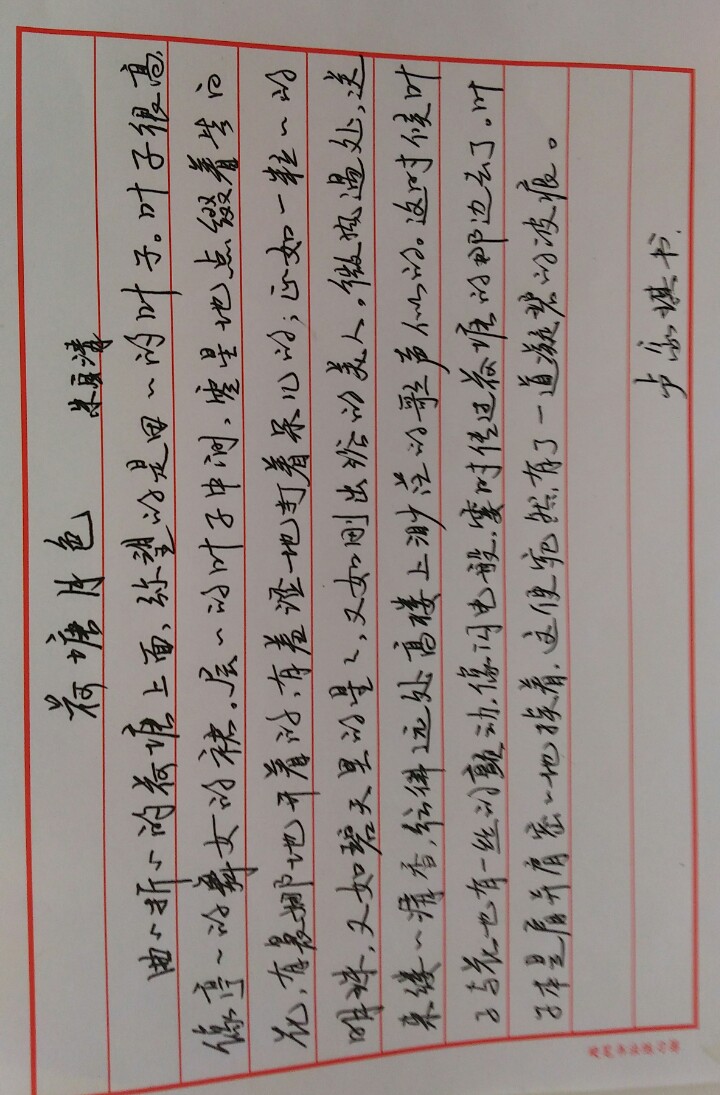 荷塘月色
朱自清
曲〻折〻的荷塘上面，弥望的是田〻的叶子。叶子很高，
像亭〻的舞女的裙。层〻的叶子中间，零星地点缀着些白
花，有袅娜地开着的，有羞涩〻地打着朵儿的；正如一粒〻的
明珠，又如碧天里的星〻，又如刚出浴的美人。微风过处，送
来缕〻清香，仿佛远处高楼上渺茫的歌声似的。这时候叶
子与花也有一丝的颤动，像闪电般，霎时传过荷塘的那边去了。叶
子本是肩并肩密〻地挨着，这便宛然有了一道凝碧的波痕。